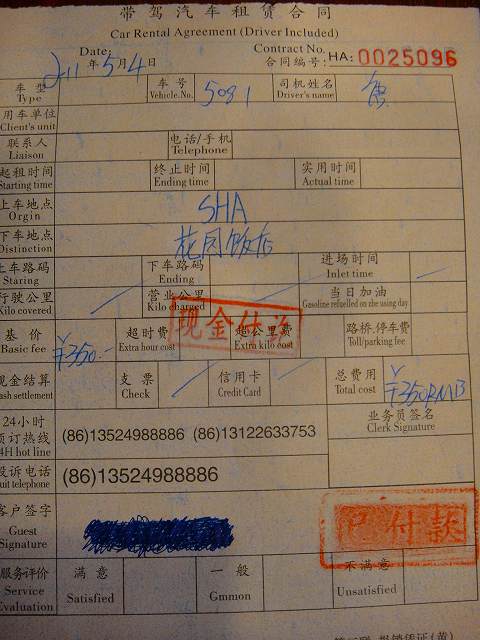 带驾汽车租赁合同
Car Rental Agreement (Driver Included)
Date: Contract No.
2011年5月4日 合同编号: HA: 0025096
车型 车号 5081 司机姓名
Type Vehicle.No. Driver's name
用车单位
Client's unit
联系人 电话/手机
Liaison Telephone
起租时间 终止时间 实用时间
Starting time Ending time Actual time
上车地点 SHA
Orgin
下车地点 花园饭店
Distinction
上车路码 下车路码 进场时间
Staring Ending Inlet time
行驶公里 营业公里 当日加油
Kilo covered Kilo charged Gasoline refuelled on the using day
现金付讫
基价 ¥350 超时费 超公里费 路桥.停车费
Basic fee Extra hour cost Extra kilo cost Toll/parking fee
现金结算 支票 信用卡 总费用 ¥350RMB
Cash settlement Check Credit Card Total cost
24小时 业务员签名
预订热线 (86)13524988886 (86)13122633753 Clerk Signature
24H hot line
投诉电话 (86)13524988886
uit telephone
客户签字
Guest
Signature
已付款
服务评价 满意 一般 不满意
Service
Evaluation Satisfied Gmmon Unsatisfied
报销凭证(黄)